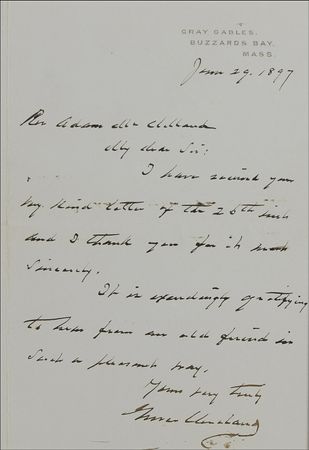 GRAY GABLES,
BUZZARDS BAY,
MASS.
June 29, 1897
Rev Adam McClelland
My dear Sir:
I have received your
very kind letter of the 25th inst
and I thank you for it most
sincerely.
It is exceedingly gratifying
to hear from an old friend in
such a pleasant way.
Yours very truly
Grover Cleveland